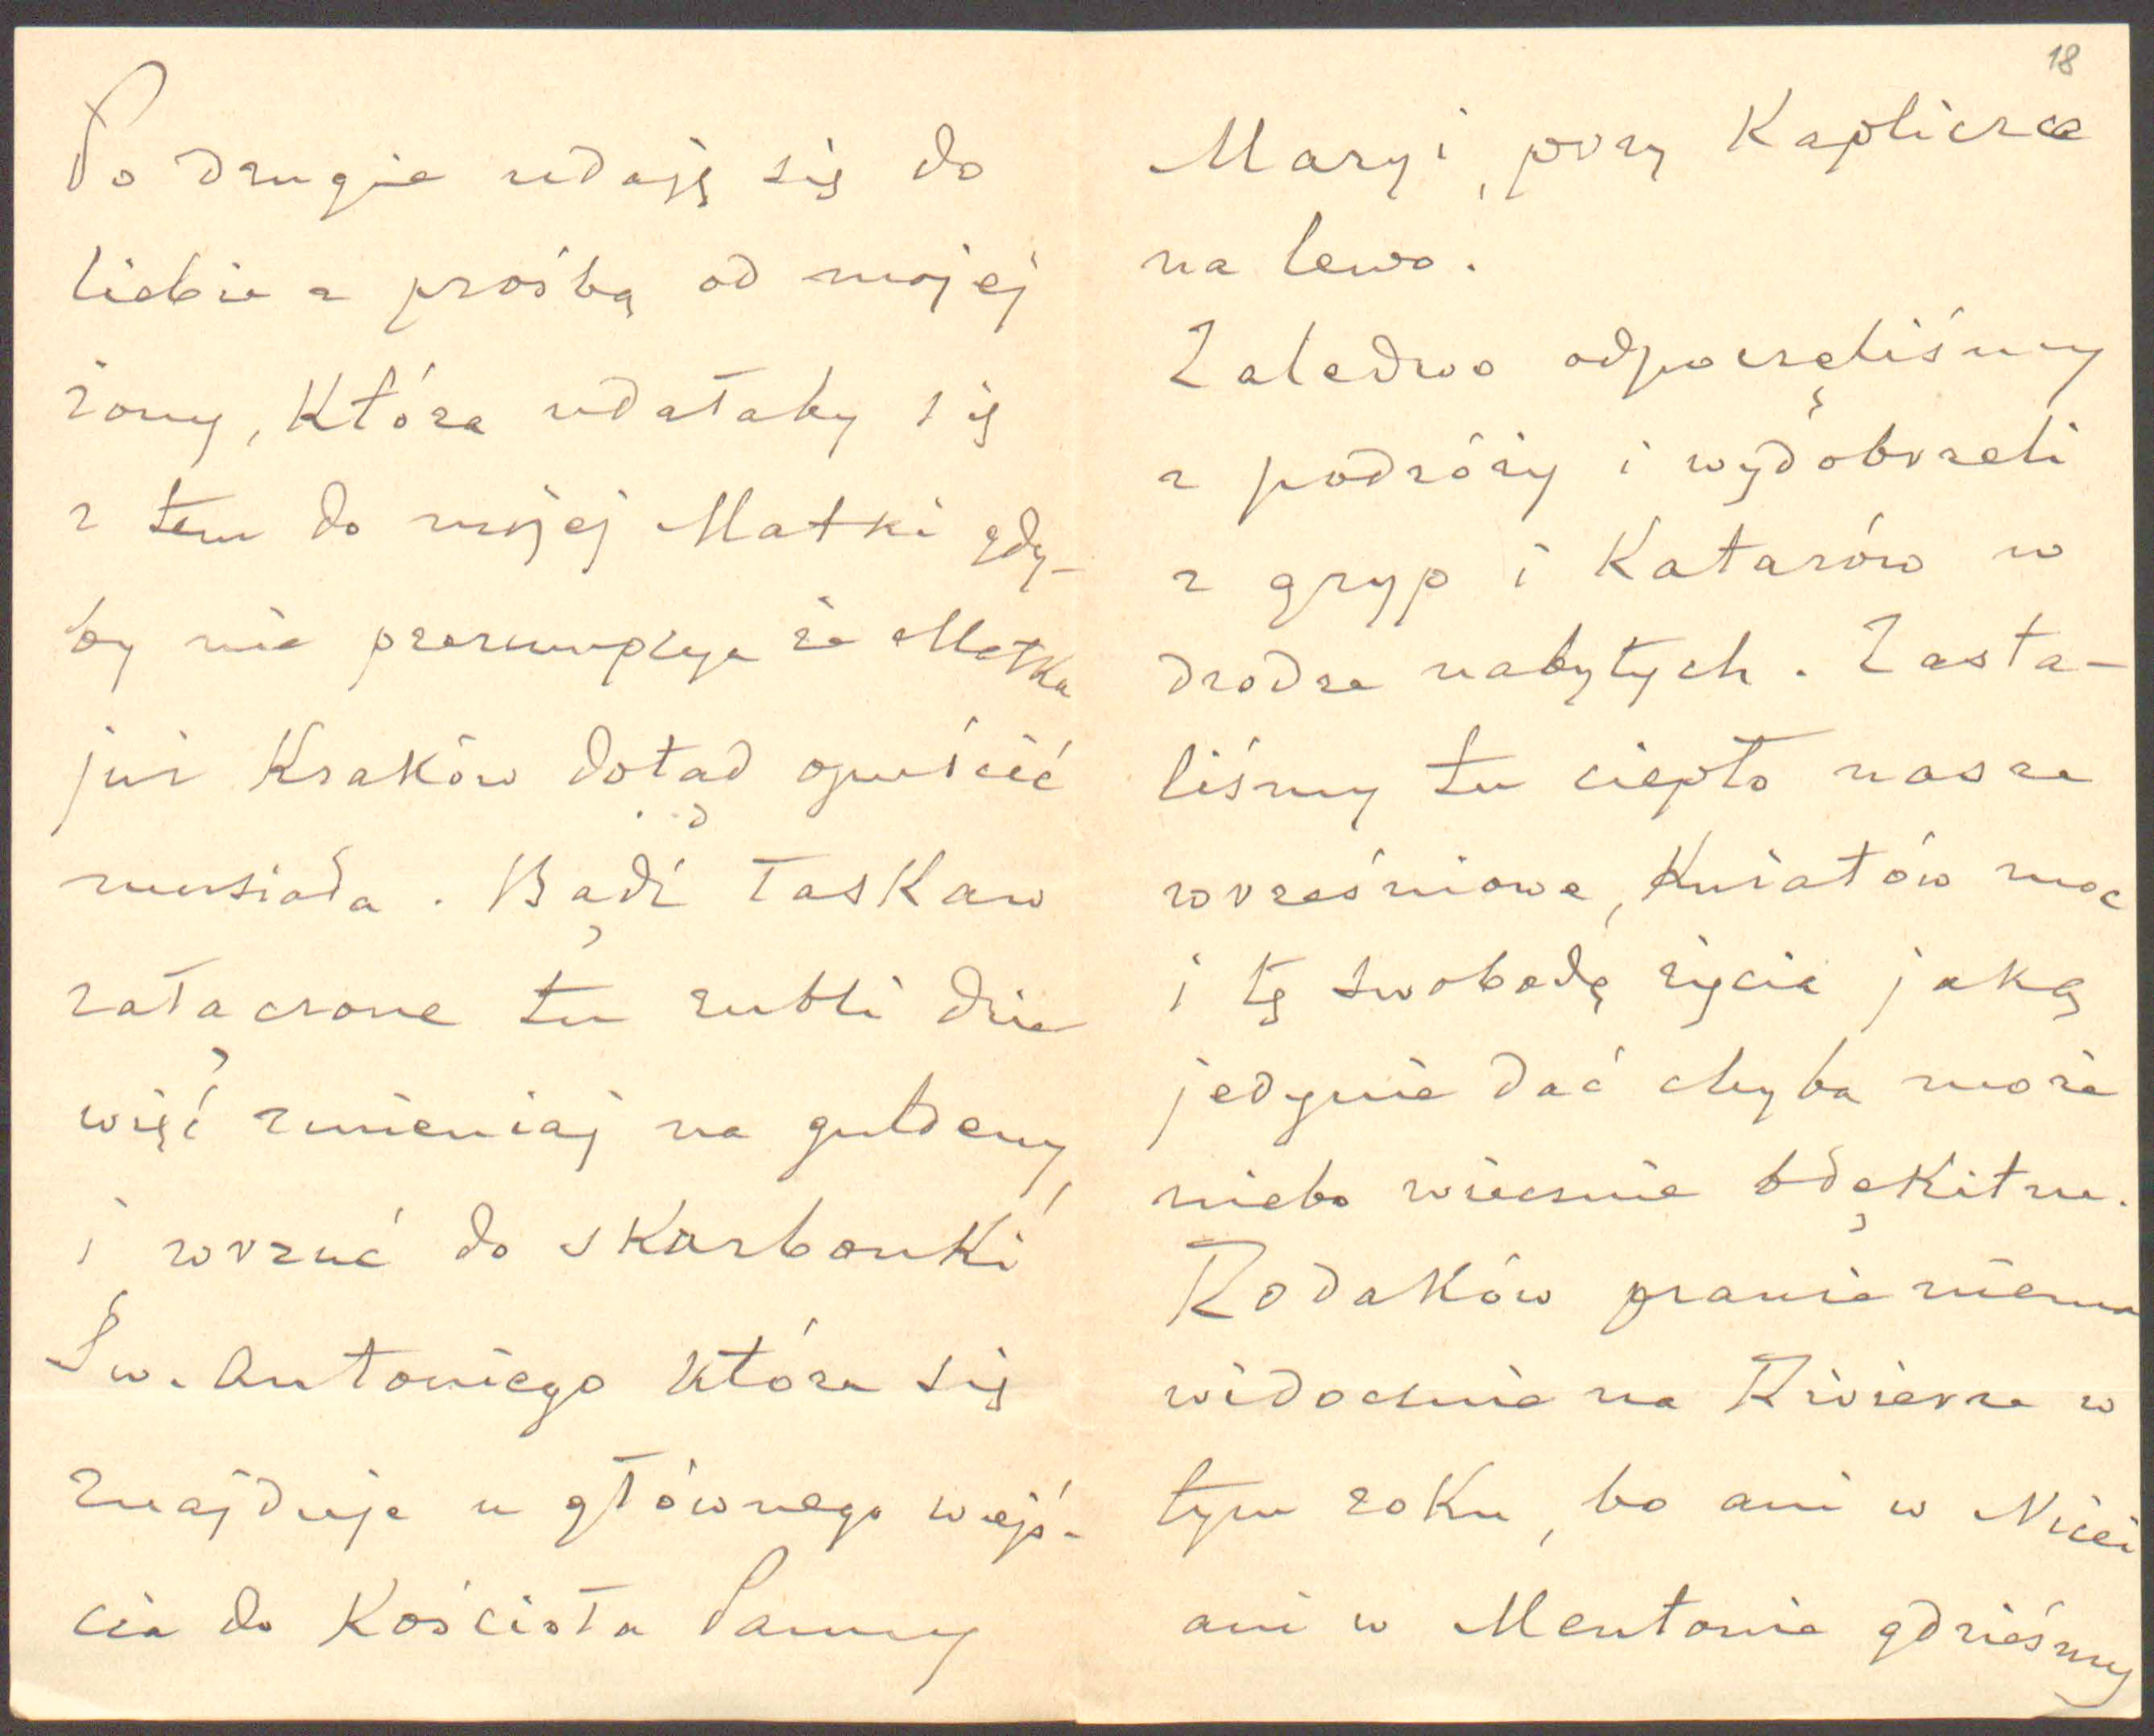 Po drugie udaję się do
Ciebie z prośbą od mojej
żony, która udałaby się
z tem do mojej Matki gdy-
by nie prezumpcya że Matka
już Kraków dotąd opuścić
musiała. Bądź łaskaw
załączone tu rubli dzie
więć zmieniaj na guldeny,
i wrzuć do skarbonki
Św. Antoniego która się
znajduje u głównego wejś-
cia do Kościoła Panny
18
Maryi, przy Kapliczce
na lewo.
Zaledwo odpoczęliśmy
z podróży i wydobrzeli
z gryp i Katarów w
drodze nabytych. Zasta-
liśmy tu ciepło nasze
wrześniowe, Kwiatów moc
i tę swobodę życia jaką
jedynie dać chyba może
niebo wiecznie błękitne.
Rodaków prawie niema
widocznie na Rivierze w
tym roku, bo ani w Nicei
ani w Mentonie gdzieśmy